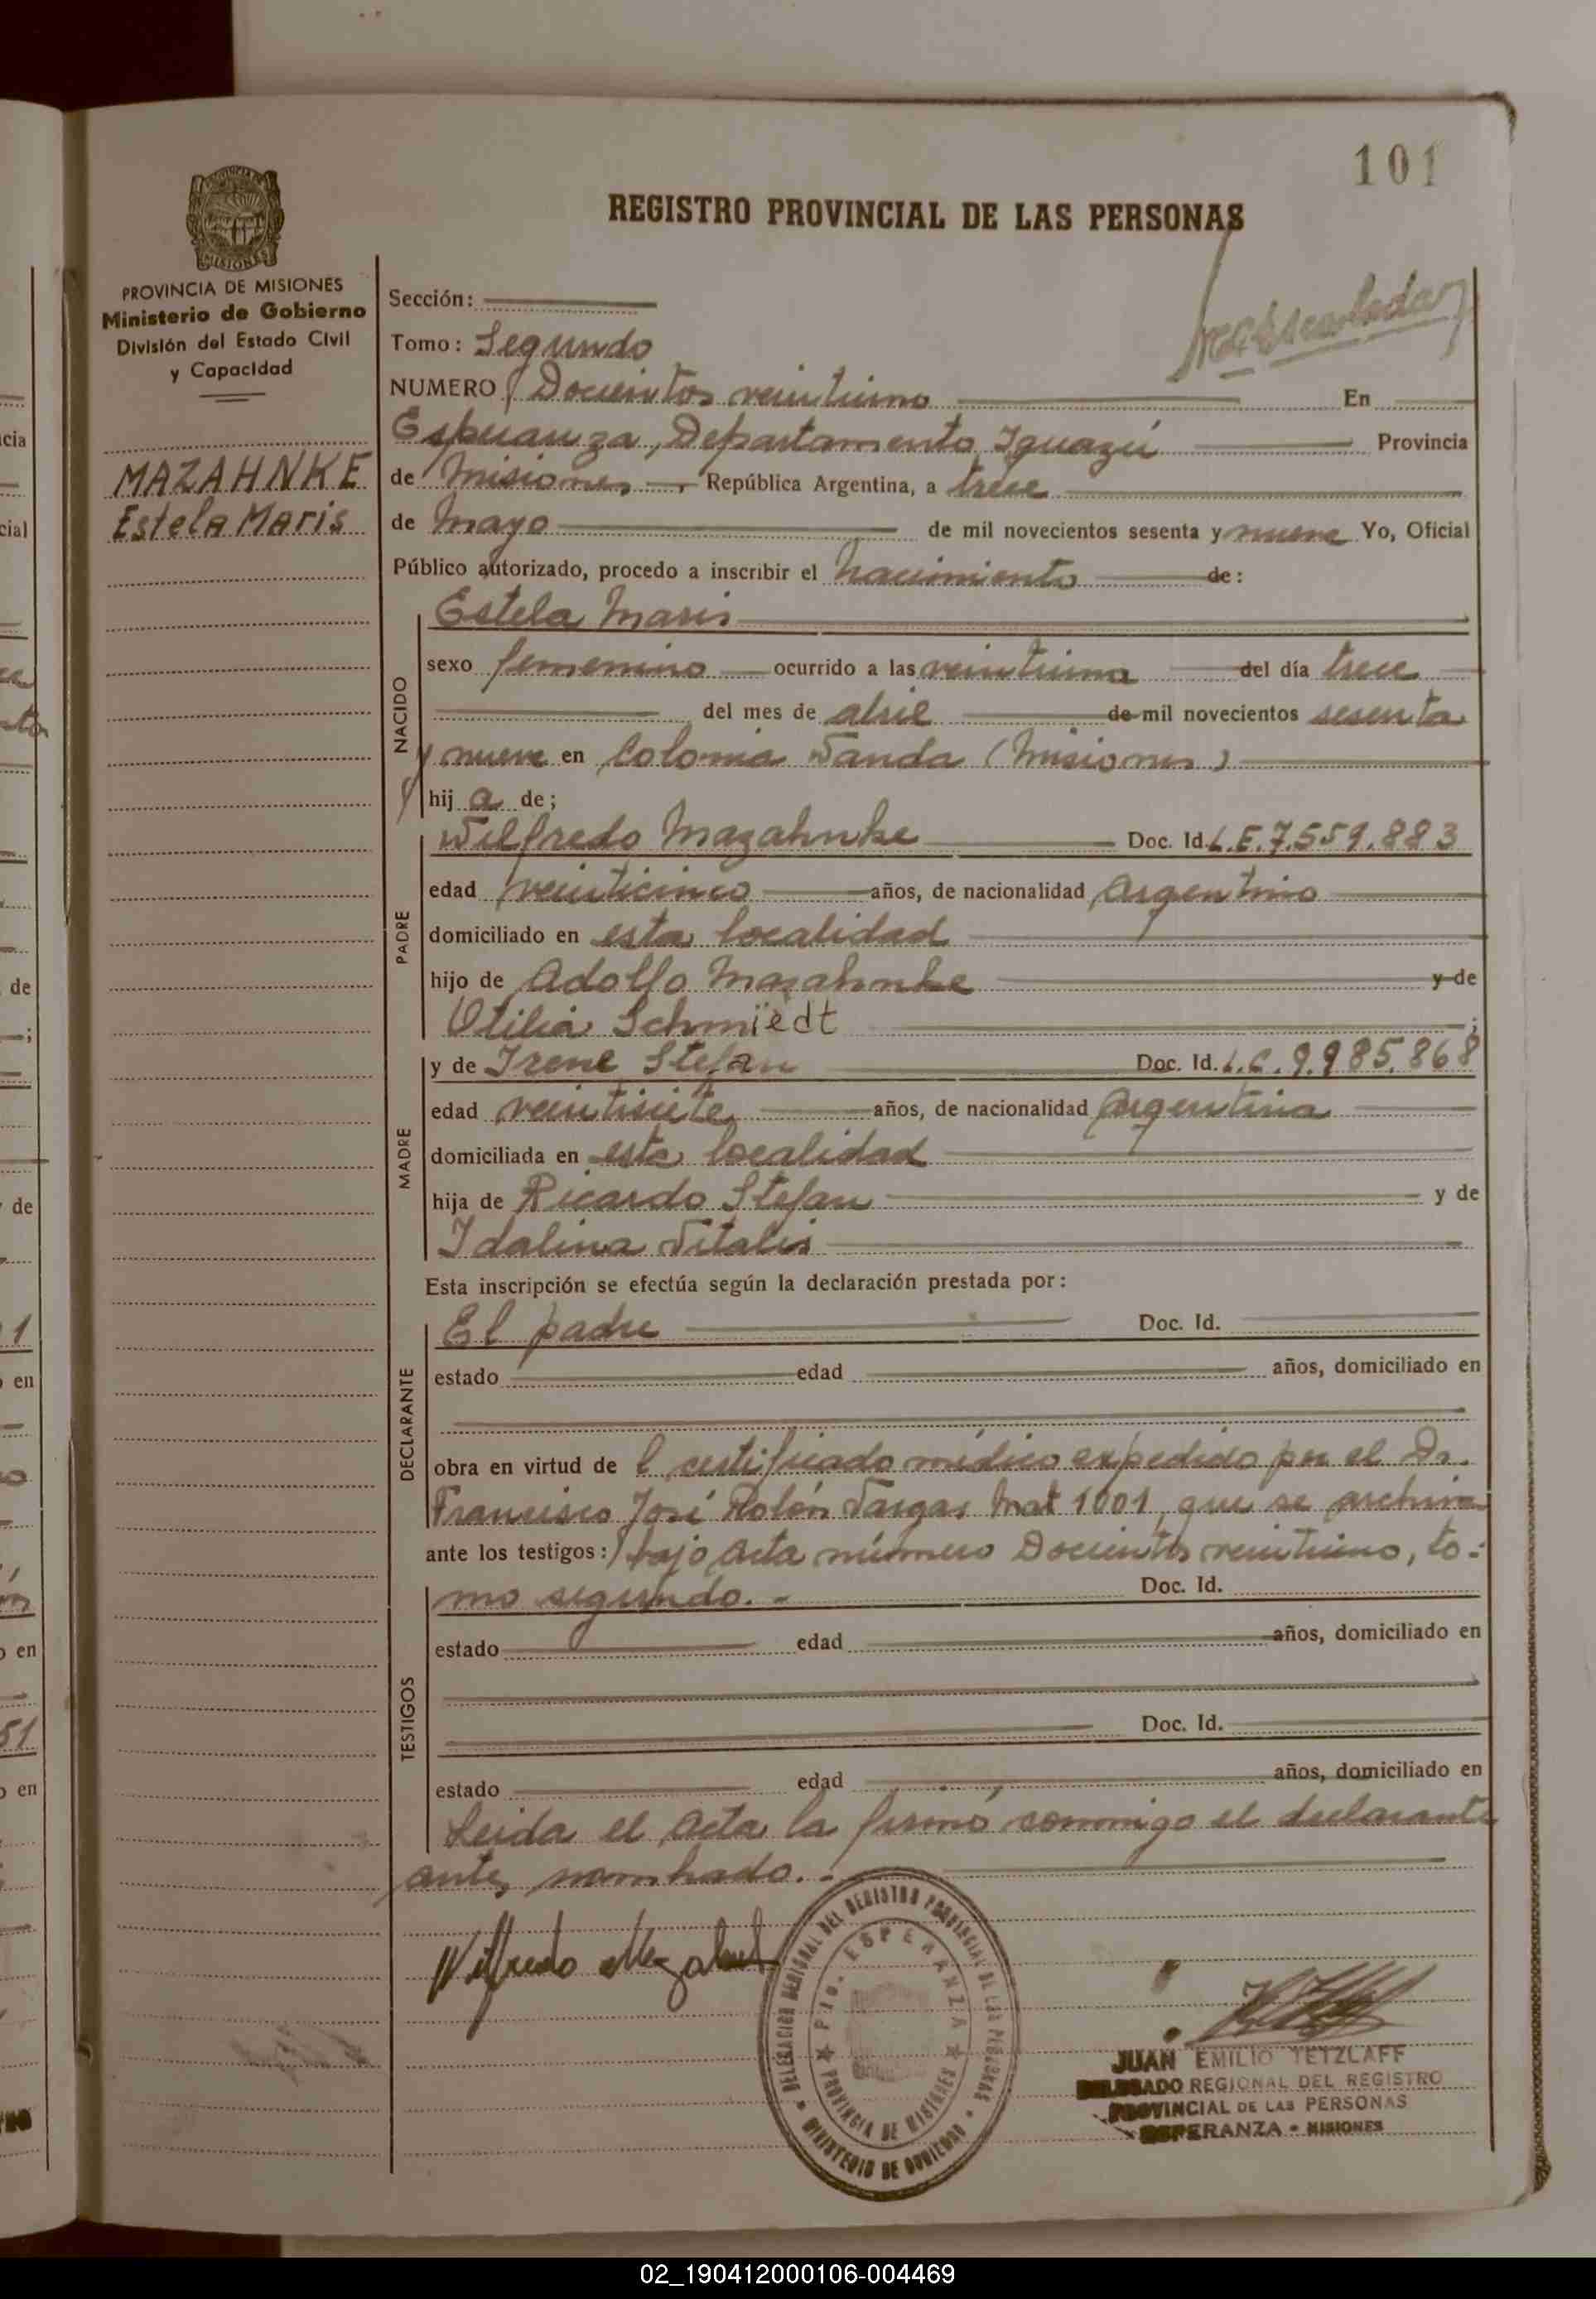 101
REGISTRO PROVINCIAL DE LAS PERSONAS
MISIONES
PROVINCIA DE MISIONES
Ministerio de Gobierno
División del Estado Civil
y Capacidad
MAZAHNKE
Estela Maris
Sección:
Tomo: Segundo
NUMERO Docientos veintiuno En
Esperanza, Departamento Iguazú Provincia
de Misiones, República Argentina, a trece
de Mayo de mil novecientos sesenta y nueve Yo, Oficial
Público autorizado, procedo a inscribir el nacimiento de:
NACIDO
Estela Maris
sexo femenino ocurrido a las veintiuna del día trece
del mes de abril de mil novecientos sesenta
y nueve en Colonia Wanda (Misiones)
hij a de;
PADRE
Wilfredo Mazahnke Doc. Id. L.E. 7.559.883
edad veinticinco años, de nacionalidad Argentino
domiciliado en esta localidad
hijo de Adolfo Mazahnke y de
Otilia Schmiedt ;
MADRE
y de Irene Stefan Doc. Id. L.C. 9.985.868
edad veintisiete años, de nacionalidad Argentina
domiciliada en esta localidad
hija de Ricardo Stefan y de
Idalina Vitalis
Esta inscripción se efectúa según la declaración prestada por:
DECLARANTE
El padre Doc. Id.
estado edad años, domiciliado en
obra en virtud de l certificado médico expedido por el Dr.
Francisco José Rolón Vargas Mat 1001, que se archiva
ante los testigos: bajo Acta número Docientos veintiuno, to-
TESTIGOS
mo segundo.- Doc. Id.
estado edad años, domiciliado en
Doc. Id.
estado edad años, domiciliado en
Leida el Acta la firmó conmigo el declarante
antes nombrado.-
DELEGACION REGIONAL DEL REGISTRO PROVINCIAL DE LAS PERSONAS
MINISTERIO DE GOBIERNO
PTO. ESPERANZA
PROVINCIA DE MISIONES
JUAN EMILIO TETZLAFF
DELEGADO REGIONAL DEL REGISTRO
PROVINCIAL DE LAS PERSONAS
ESPERANZA - MISIONES
02_190412000106-004469